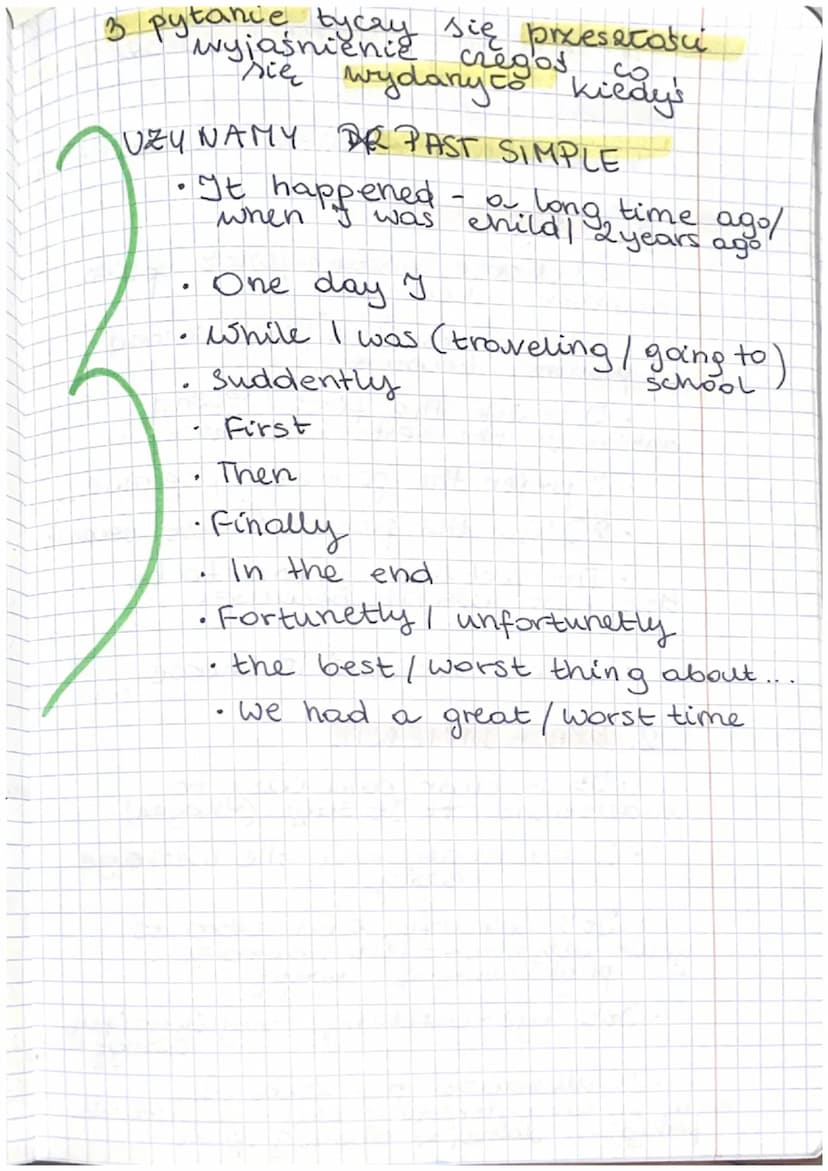 3 pytanie tyczy się przeszłości
wyjaśnienie czegoś co
się wydarzyło kiedyś
UŻYWAMY PAST SIMPLE
• It happened - a long time ago/
when I was child/ 2 years ago
• One day I
• While I was (traveling / going to)
school
• Suddently
• First
• Then
• Finally
• In the end
• Fortunetly / unfortunetly
• the best / worst thing about...
• We had a great / worst time